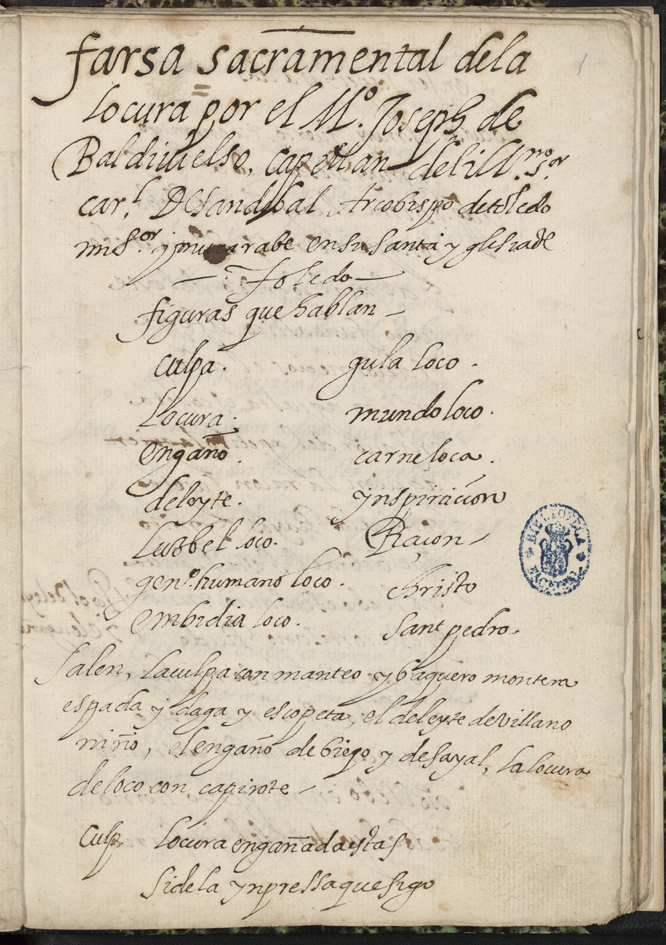 1
farsa sacramental dela
locura por el Mº. Joseph de
Baldiuielso, capellan del ill.mo s.or
car.l D Sandobal Arcobispo detoledo
mi s.or y mucarabe en su santa yglesia de
— toledo —
figuras que hablan —
culpa. gula loco.
Locura. mundo loco.
engaño. carne loca.
deleyte. ynspiracion
Luzbel loco. Racon —
genº. humano loco. christo
embidia loco. sant pedro.
salen, la culpa con manteo y baquero montera
espada y daga y escopeta, el deleyte de villano
niño, el engaño de biejo y de sayal, la locura
de loco con capirote —
culp locura engañada estas
si dela ynpressa que sigo
BIBLIOTECA NACIONAL